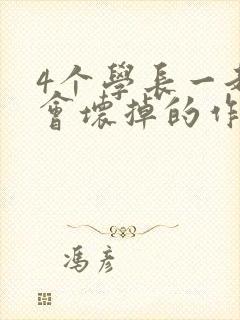 4个學長一
會壞掉的作
馮彥